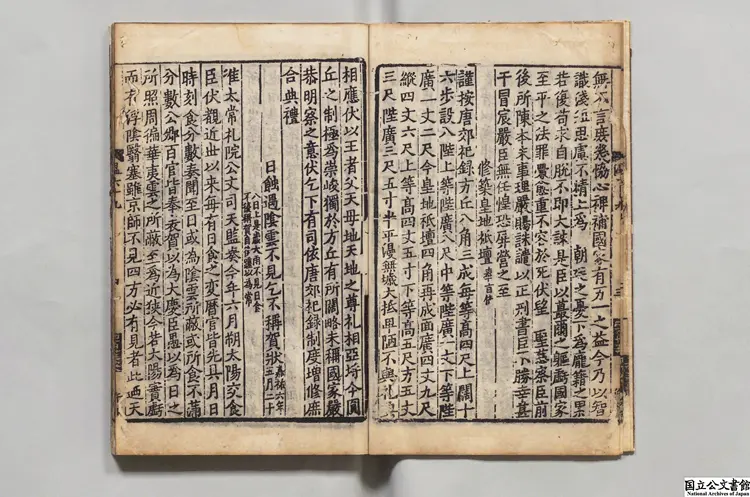 無不言庶幾協心裨補國家有万一之益今乃以智
識淺短思慮不精上為 朝廷之憂下為龐籍之累
若復苟求自脫不即大誅是臣以蕞爾之軀虧國家
至平之法罪釁愈重不容於死伏望 聖慈察臣前
後所陳本末事理嚴賜誅譴以正刑書臣不勝幸甚
干冒宸嚴臣無任惶恐屏營之至
修築皇地祇壇
謹按唐郊祀録方丘八角三成每等高四尺上闊十
六步設八陛上等陛廣八尺中等陛廣一丈下等陛
廣一丈二尺今皇地祇壇四角再成面廣四丈九尺
縱四丈六尺上等高四丈五寸下等高五尺方五丈
三尺陛廣三尺五寸半平漫無城大抵卑陋不與礼典
相應伏以王者父天母地天地之尊礼相亞埒今圓
丘之制極為崇峻獨於方丘有所闕略未稱國家嚴
恭明察之意伏乞下有司依唐郊祀録制度增修庶
合典禮
日蝕遇陰雲不見乞不稱賀狀 嘉祐六年五月二十
八日上是歲六月不見日食不稱賀自後遂以為常
准太常礼院公文司天監奏今年六月朔太陽交食
臣伏覩近世以来每有日食之变曆官皆先具月日
時刻食分數奏聞至日或為陰雲所蔽或所食不滿
分數公卿百官皆奉表賀以為大慶臣愚以為日之
所照周徧華夷雲之所蔽至為近狹今若太陽實虧
而有浮陰翳塞雖京師不見四方必有見者此迺天
国立公文書館
National Archives of Japan